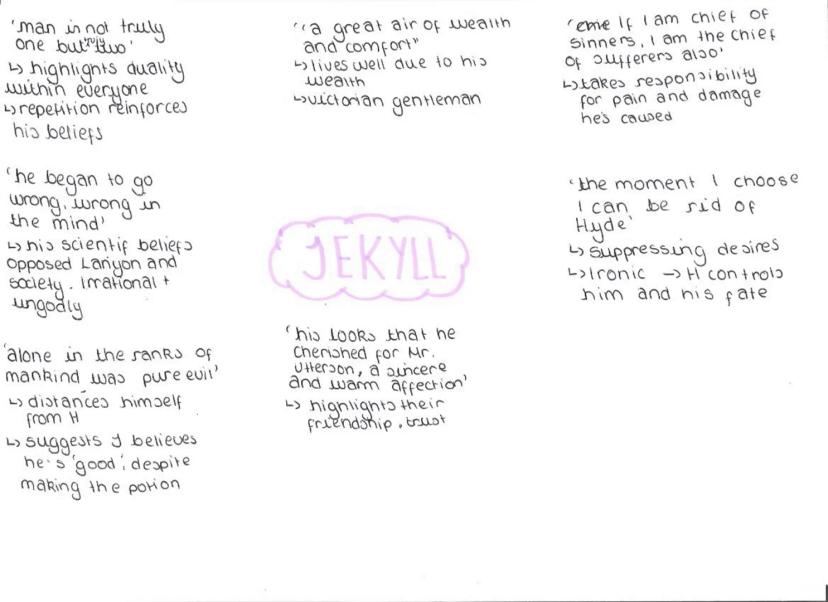 'man is not truly
one but truly two'
↳ highlights duality
within everyone
↳ repetition reinforces
his beliefs
'he began to go
wrong, wrong in
the mind'
↳ his scientif beliefs
opposed Lanyon and
society. Irrational +
ungodly
'alone in the ranks of
mankind was pure evil'
↳ distances himself
from H
↳ suggests J believes
he's 'good', despite
making the potion
"a great air of wealth
and comfort"
↳ lives well due to his
wealth
↳ victorian gentleman
JEKYLL
'his looks that he
cherished for Mr.
Utterson, a sincere
and warm affection'
↳ highlights their
friendship, trust
If I am chief of
sinners, I am the chief
of sufferers also'
↳ takes responsibility
for pain and damage
he's caused
'the moment I choose
I can be rid of
Hyde'
↳ suppressing desires
↳ Ironic → H controls
him and his fate